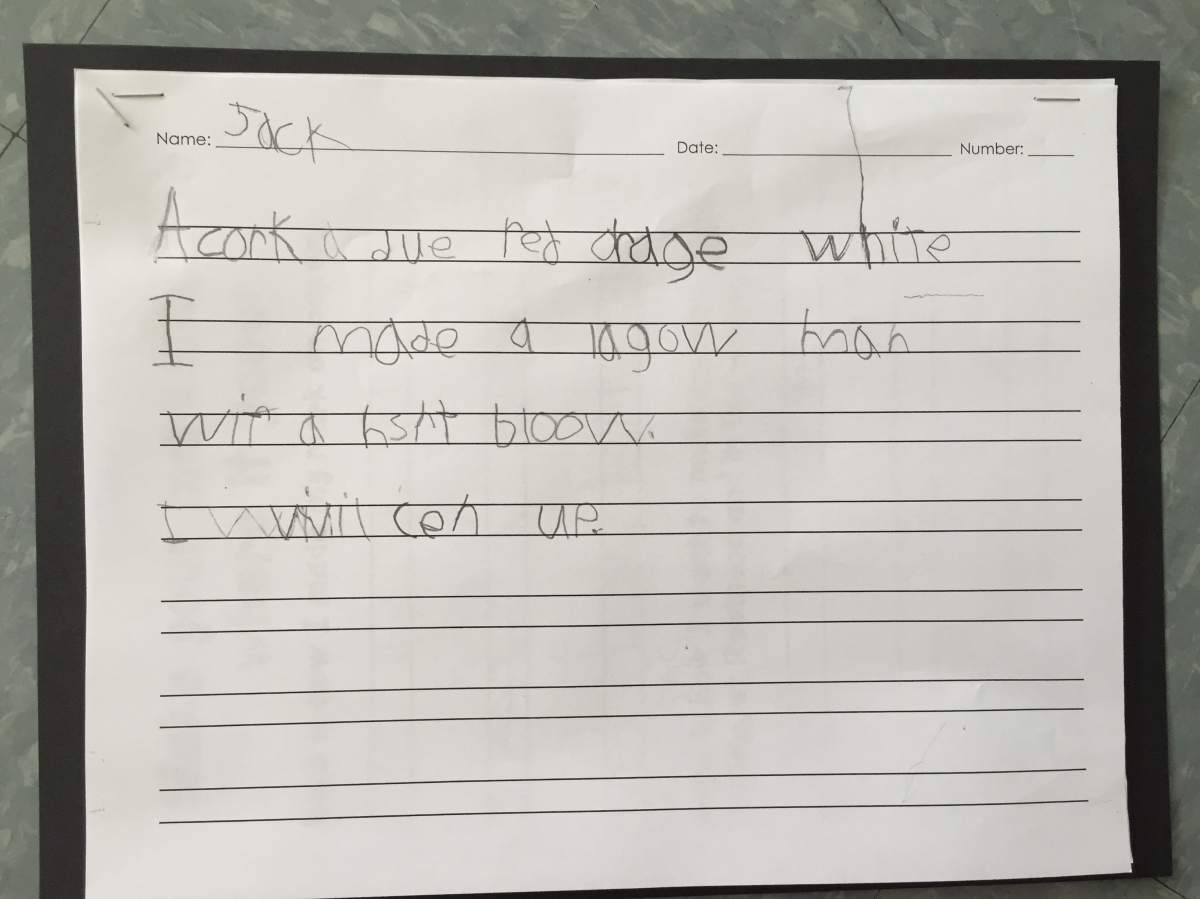 Name: Jack Date: Number:
A cork a due red orage white
I made a lagow man
wit a hsht bloow.
I will cen up.